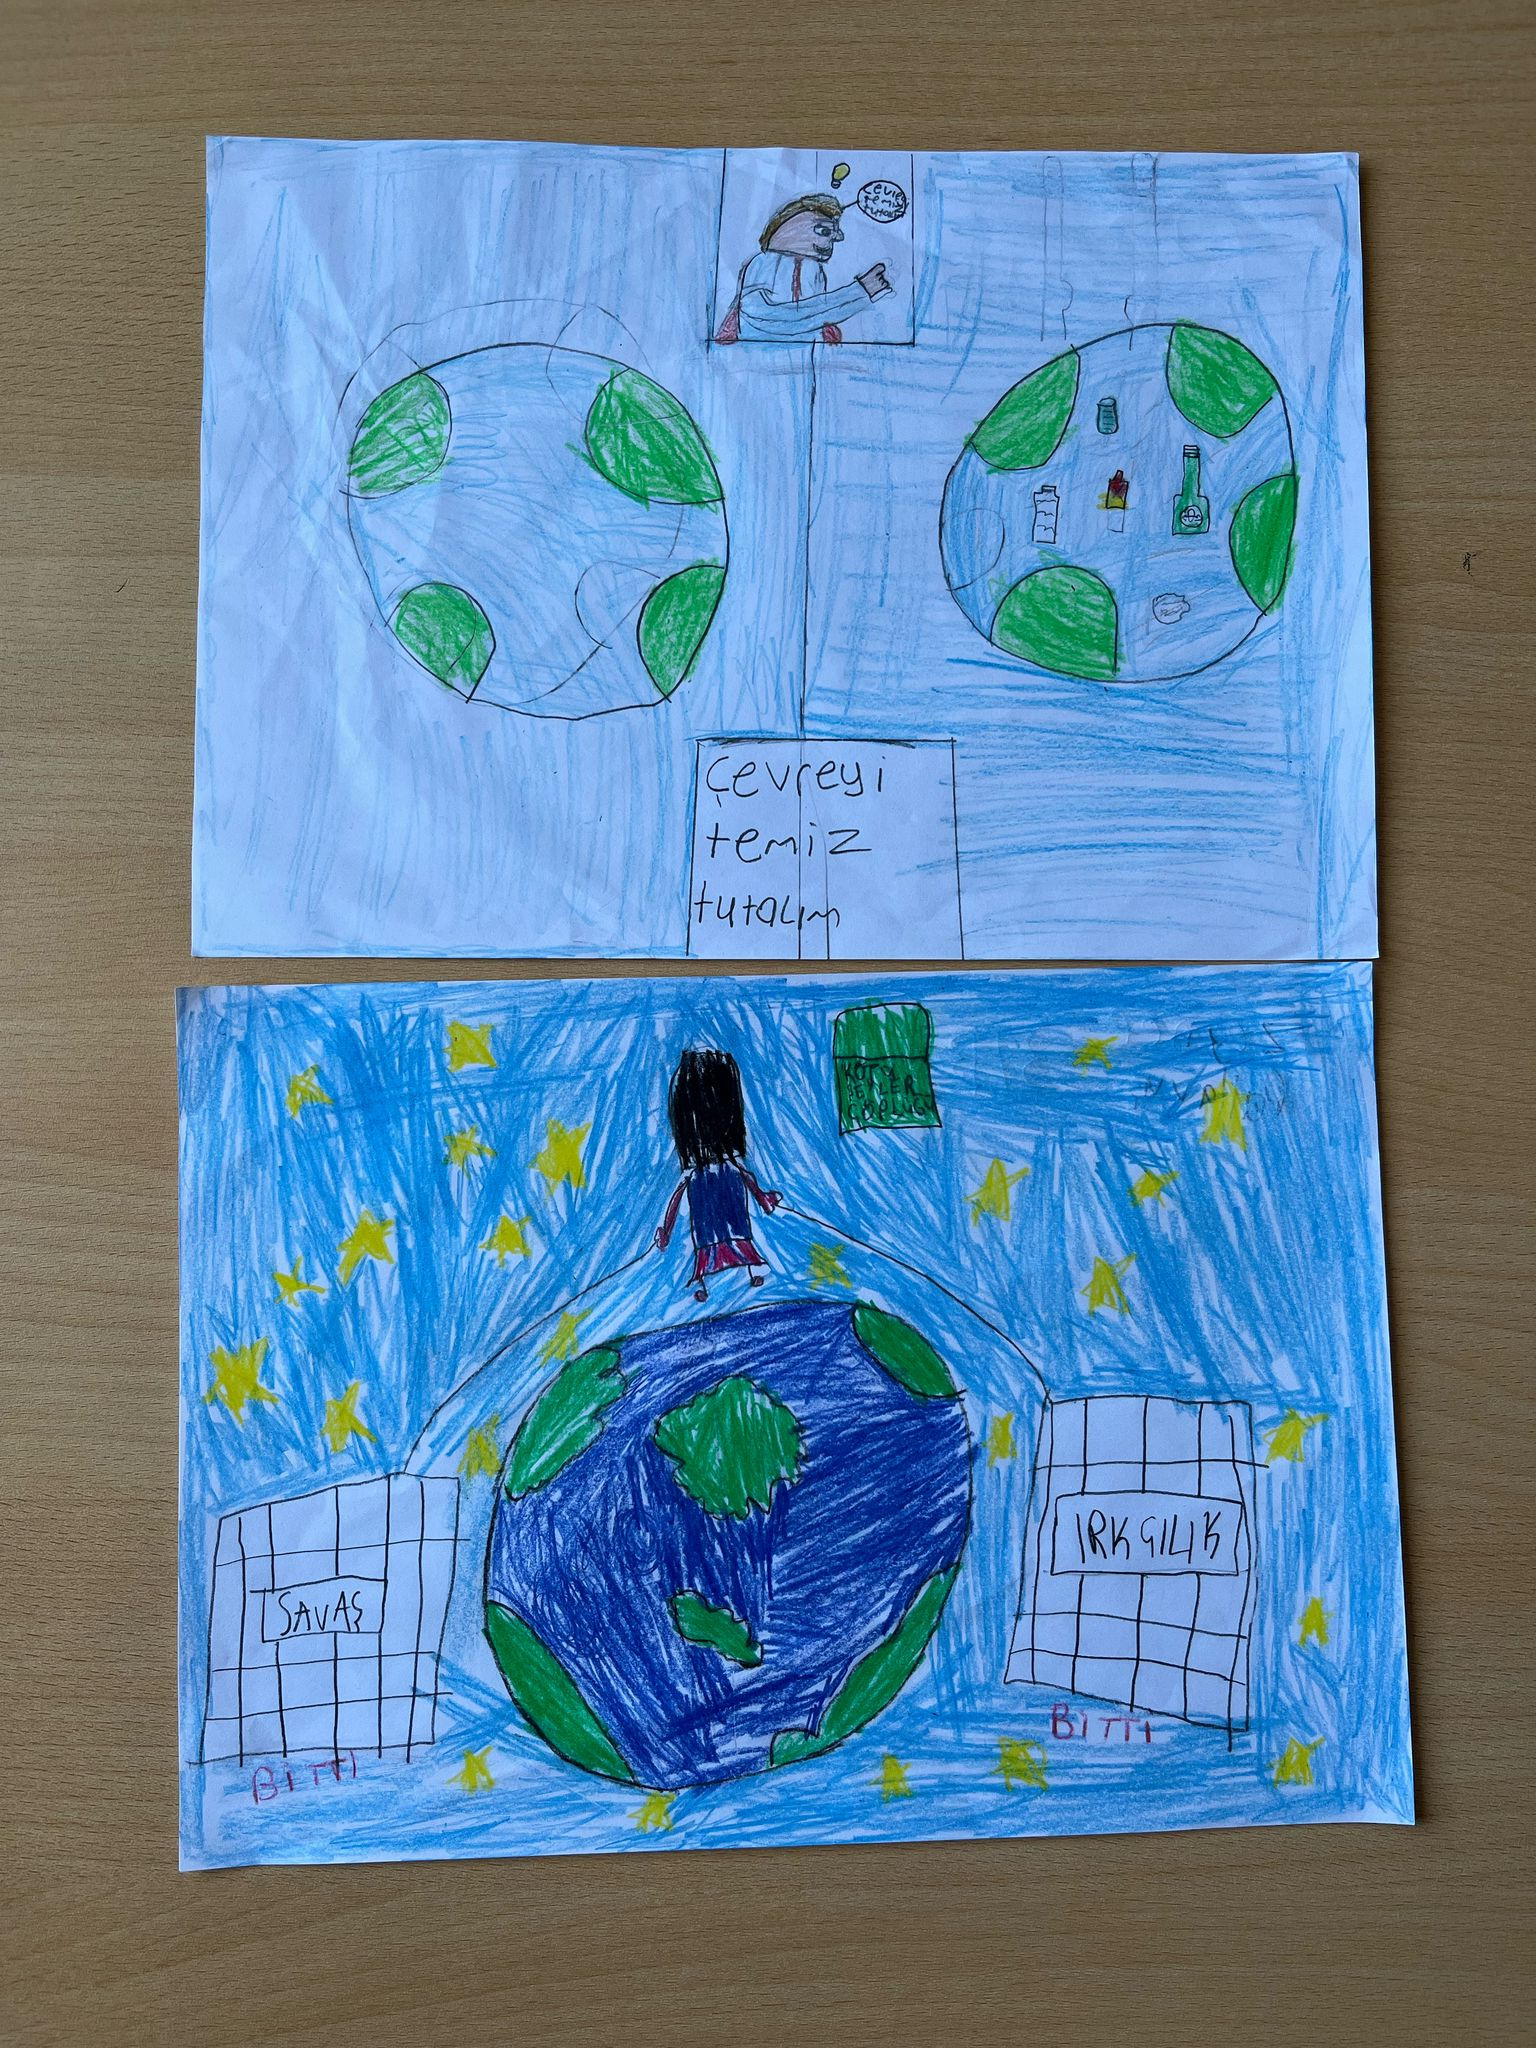 Çevreyi
temiz
tutalım
çevreyi
temiz
tutalım
KÖTÜ
ŞEYLER
ÇÖPLÜĞÜ
SAVAŞ
IRKÇILIK
BİTTİ
BİTTİ